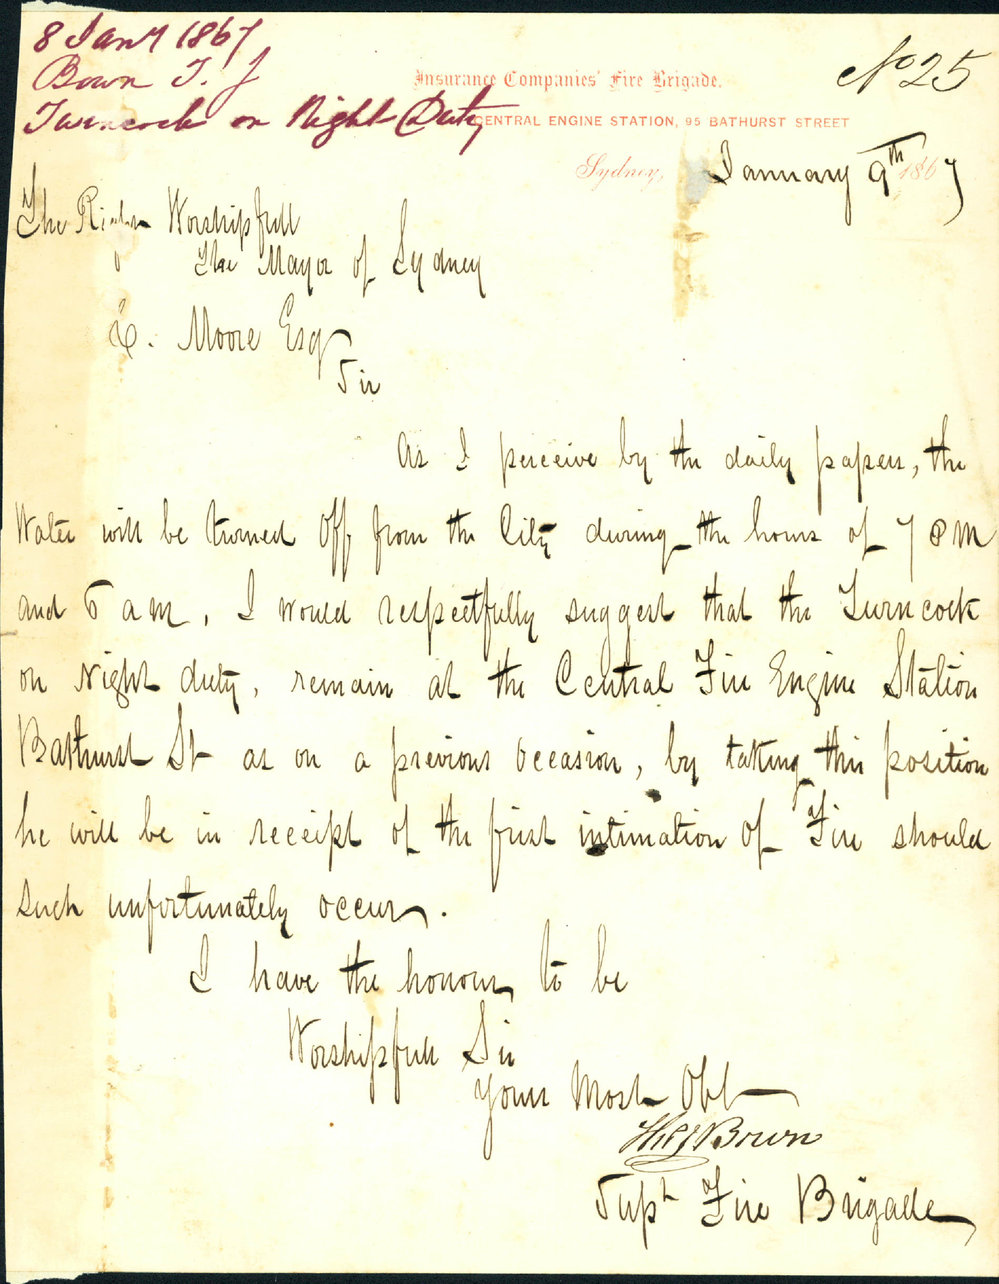 8 Jany 1867
Bown T. J
Turncock on Night Duty
No 25
Insurance Companies' Fire Brigade.
CENTRAL ENGINE STATION, 95 BATHURST STREET
Sydney, January 9th 1867
The Right Worshipfull
The Mayor of Sydney
C. Moore Esqr
Sir
As I perceive by the daily papers, the
Water will be turned Off from the City during the hours of 7 P M
and 6 a m, I would respectfully suggest that the Turncock
on Night duty, remain at the Central Fire Engine Station
Bathurst St as on a previous Occasion, by taking this position
he will be in receipt of the first intimation Of Fire should
such unfortunately occur.
I have the honour to be
Worshipfull Sir
Yours Most Obt
Thos J Bown
Supt Fire Brigade